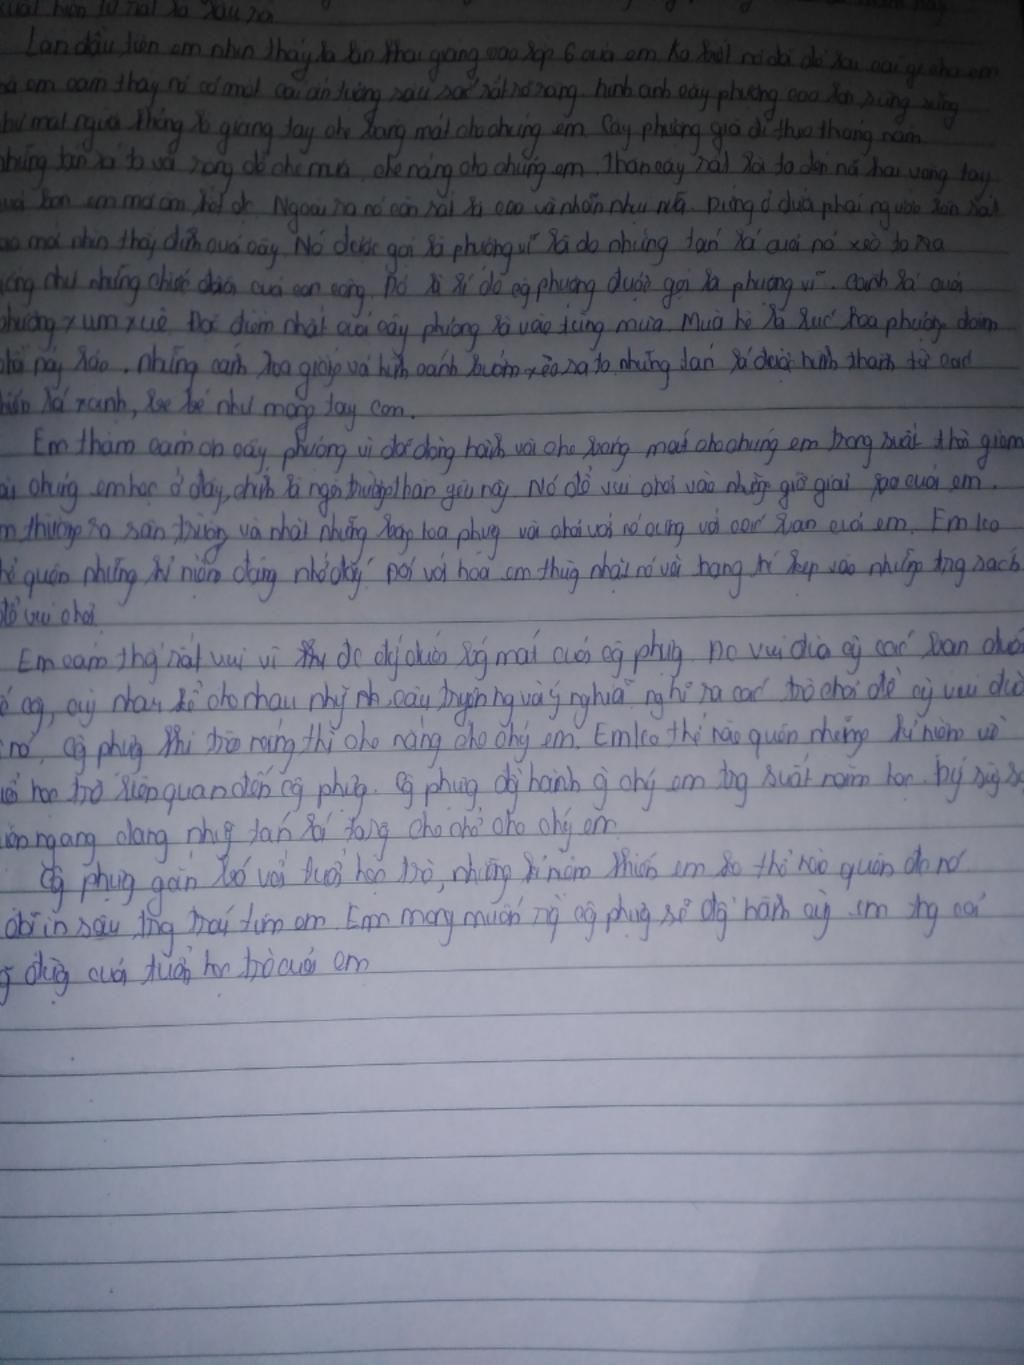 xuất hiện từ rất là lâu rồi
Lần đầu tiên em nhìn thấy là lần khai giảng vào lớp 6 của em. Ko biết nó đã để lại cái gì cho em
em cảm thấy nó có một cái ấn tượng sâu sắc rất rõ ràng. hình ảnh cây phượng cao lớn sừng sững
như một người khổng lồ giang tay che bóng mát cho chúng em. Cây phượng già đi theo tháng năm
những tán lá to và rộng để che mưa, che nắng cho chúng em. Thân cây rất là to đến nỗi hai vòng tay
của bọn em mới ôm hết đc. Ngoài ra nó còn rất là cao và nhẵn như nữa. Đứng ở dưới phải ngước lên rất
cao mới nhìn thấy đỉnh của cây. Nó được gọi là phượng vĩ là do những tán lá của nó xòe to ra
giống như những chiếc đuôi của con công. Đó là lí do cây phượng được gọi là phượng vĩ. Cành lá của
phượng xum xuê. Đặc điểm nhất của cây phượng là vào từng mùa. Mùa hè là lúc hoa phượng đâm
chồi nảy lộc. Những cánh hoa giống với hình cánh bướm xòe ra to những tán lá được hình thành từ các
lá xanh, be bé như móng tay con.
Em thầm cảm ơn cây phượng vì đã đồng hành và che bóng mát cho chúng em trong suốt thời gian
chúng em học ở đây, chính là ngôi trường thân yêu này. Nó để vui chơi vào những giờ giải lao của em.
thường ra sân trường và nhặt những hoa phg và chơi với nó cùng với các bạn của em. Em ko
quên những kỉ niệm đáng nhớ đấy. Đối với hoa em thường nhặt nó và trang trí kẹp vào những trg sách
để vui chơi
Em cảm thấy rất vui vì đc dưới bóng mát của cây phượng. Đc vui đùa cùng các bạn dưới
cùng nhau kể cho nhau những câu truyện ng và ý nghĩa nghĩ ra các trò chơi để cùng vui dưới
nó, cây phượng khi trời nắng thì che nắng cho chúng em. Em ko thể nào quên những kỉ niệm về
học trò liên quan đến cây phượng. Cây phượng đồng hành cùng chúng em trg suốt năm học.
ngang dang những tán lá rộng che chở cho chúng em
Cây phượng gắn bó với tuổi học trò, những kỉ niệm khiến em ko thể nào quên đc nó
in sâu trg trái tim em. Em mong muốn rằng cây phượng sẽ đồng hành cùng em trg cái
của tuổi học trò của em